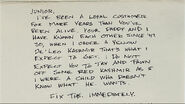 JUNIOR,
I'VE BEEN A LOYAL CUSTOMER
FAR MORE YEARS THAN YOU'VE
BEEN ALIVE. YOUR DADDY AND I
HAVE KNOWN EACH OTHER SINCE HIGH
SO, WHEN I ORDER A YELLOW
DE' LEO KASHMIR THAT'S WHAT I
EXPECT TO GET.
EXPECT YOU TO TRY AND PAWN
OFF SOME RED KASHMIR AS IF
I WERE A CHILD WHO DOESN'T
KNOW WHAT HE WANTS.
FIX THIS IMMEDIATELY.